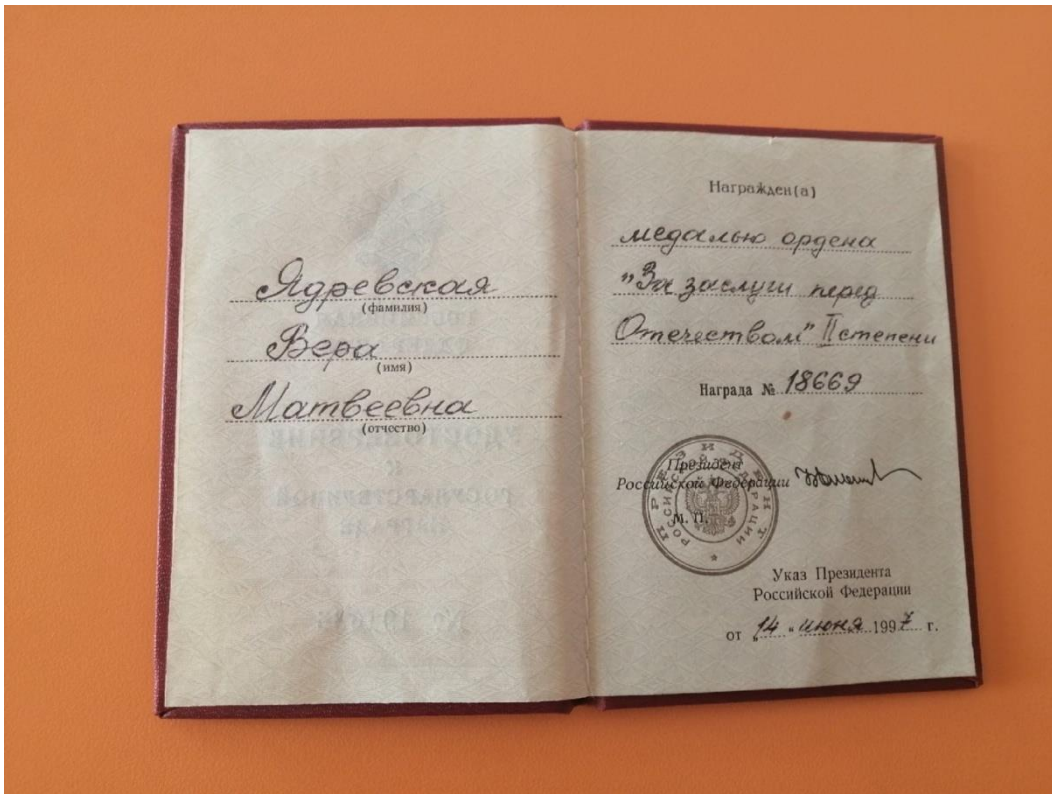 Ядревская
(фамилия)
Вера
(имя)
Матвеевна
(отчество)
Награжден(а)
медалью ордена
"За заслуги перед
Отечеством" II степени
Награда № 18669
Президент
Российской Федерации
М. П.
ПРЕЗИДЕНТ
РОССИЙСКОЙ ФЕДЕРАЦИИ
Указ Президента
Российской Федерации
от „14 " июня 1997 г.